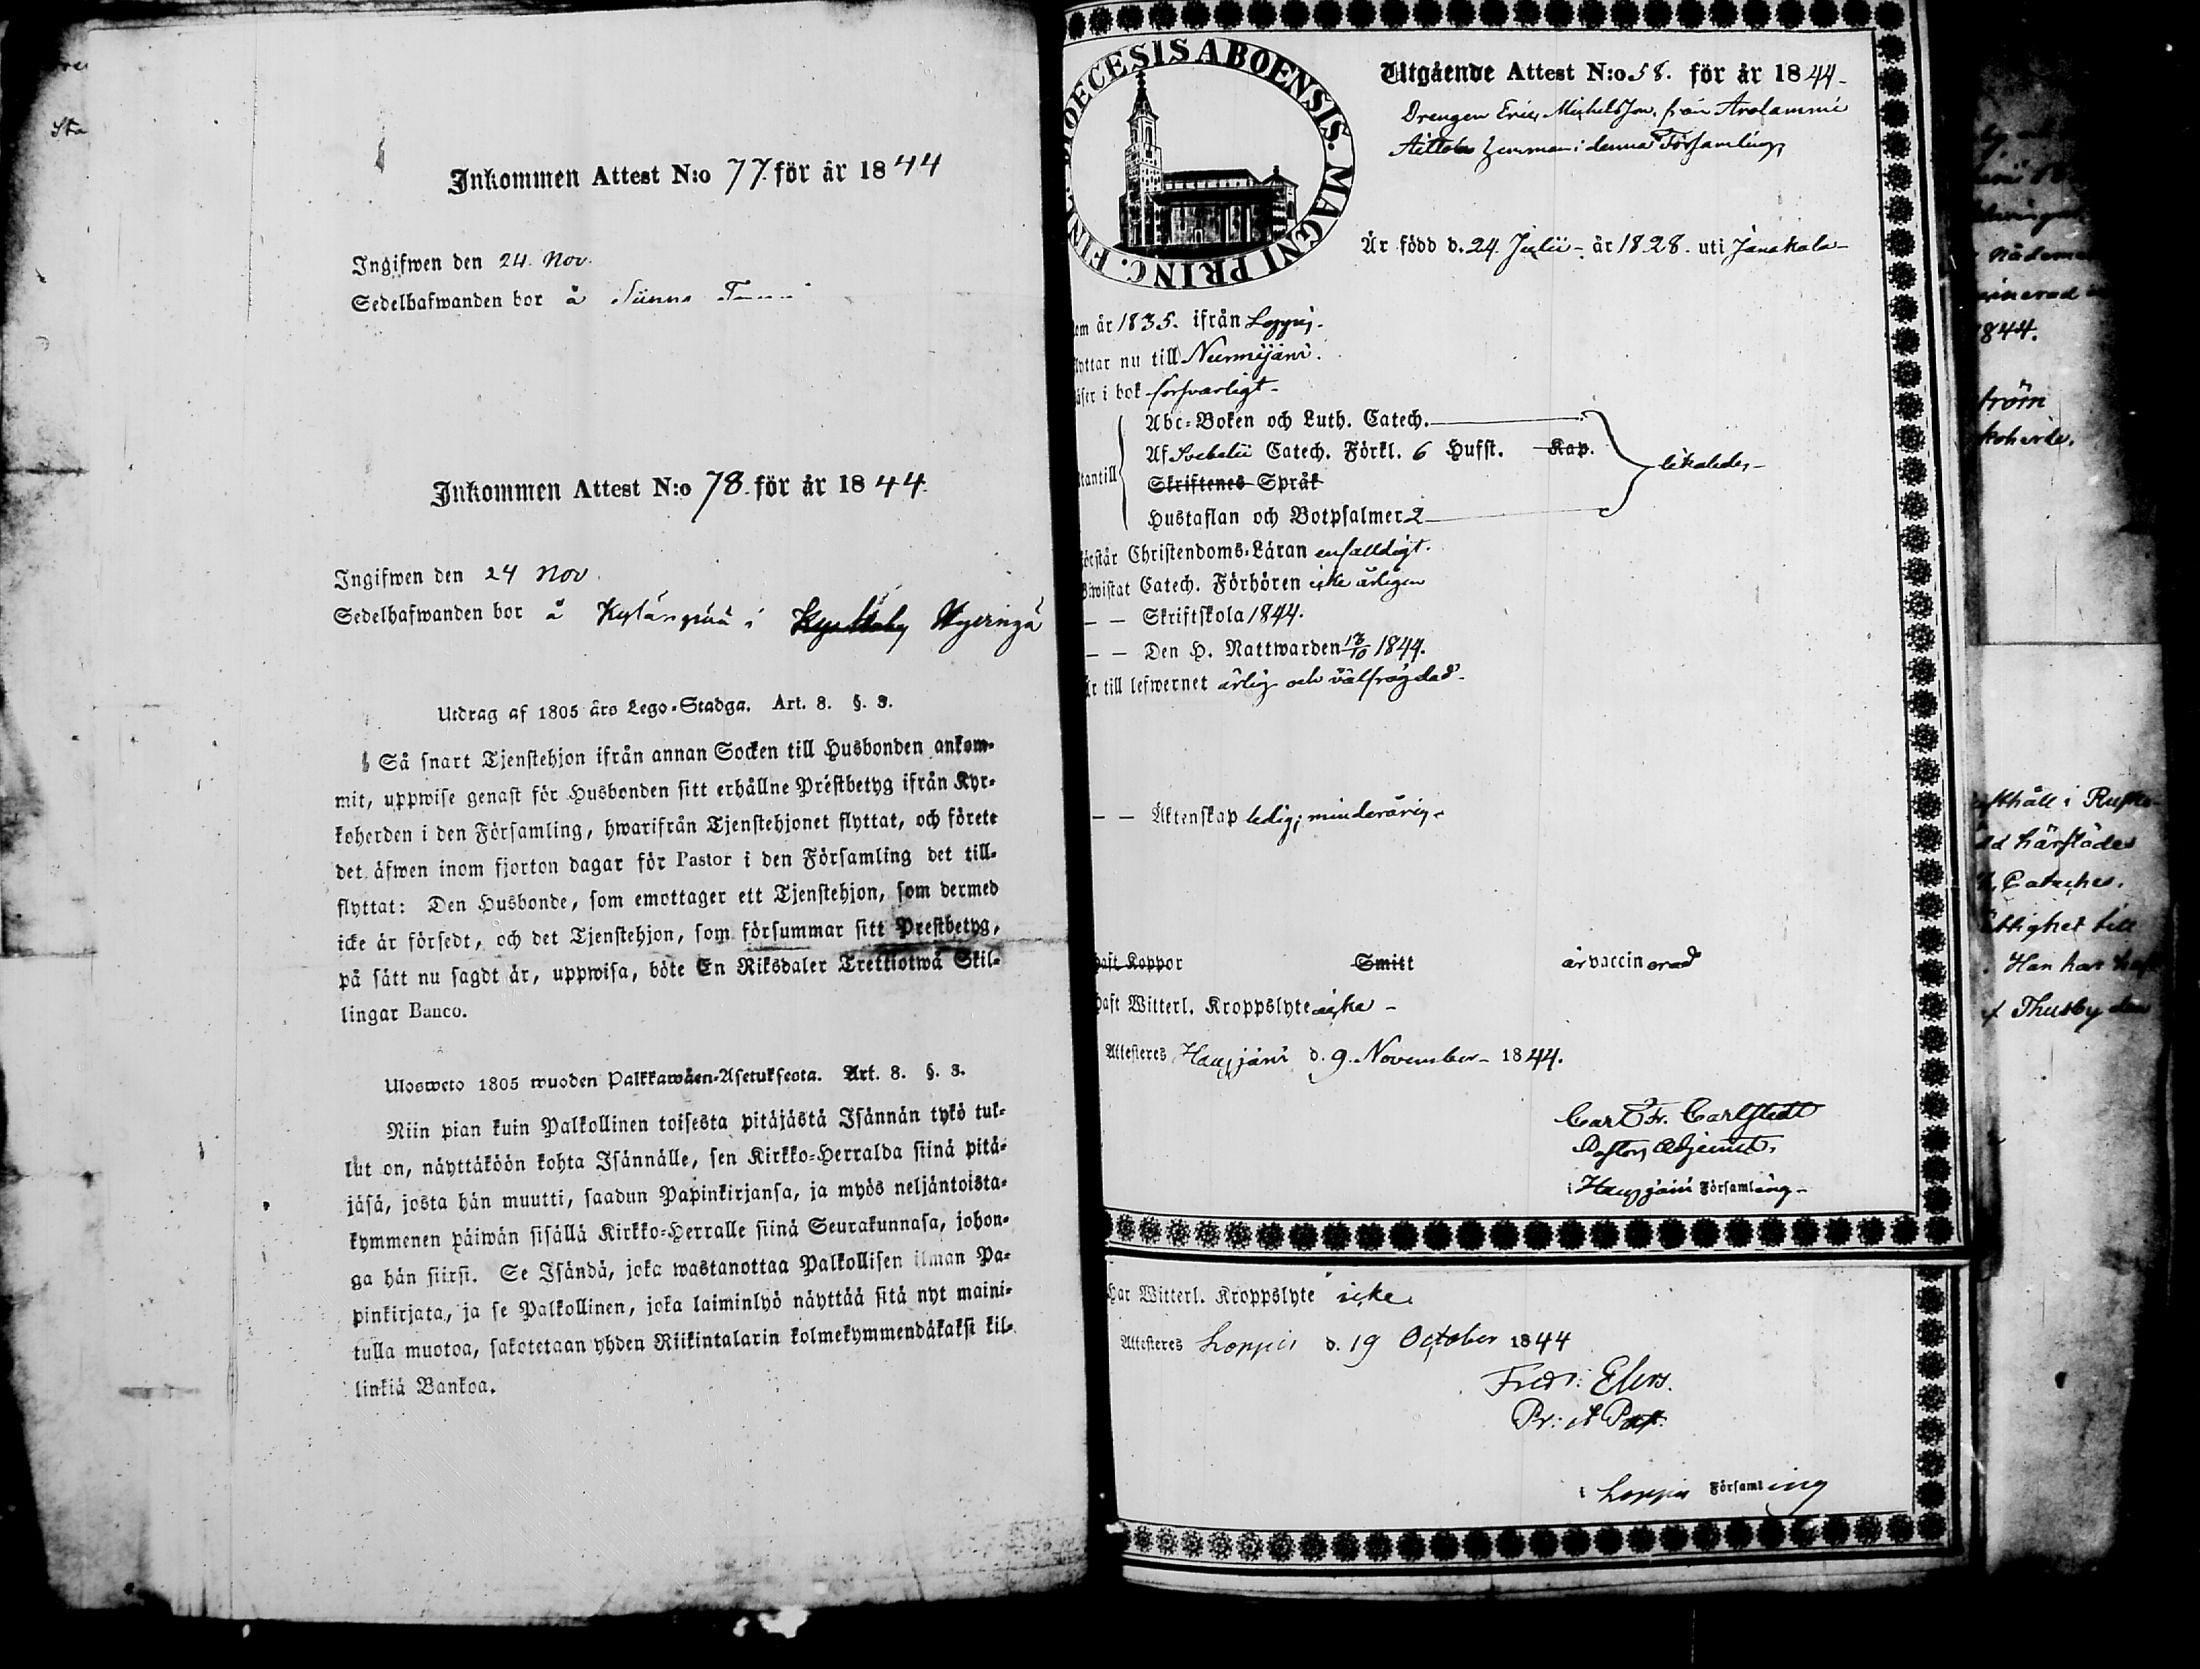 Inkommen Attest N:o 77. för år 1844
Ingifwen den 24. Nov.
Sedelhafwanden bor å
Inkommen Attest N:o 78. för år 1844.
Ingifwen den 24 Nov.
Sedelhafwanden bor å i
Utdrag af 1805 års Lego-Stadga. Art. 8. §. 3.
Så snart Tjenstehjon ifrån annan Socken till Husbonden ankom-
mit, uppwise genast för Husbonden sitt erhållne Prestbetyg ifrån Kyr-
koherden i den Församling, hwarifrån Tjenstehjonet flyttat, och förete
det äfwen inom fjorton dagar för Pastor i den Församling det till-
flyttat: Den Husbonde, som emottager ett Tjenstehjon, som dermed
icke är försedt, och det Tjenstehjon, som försummar sitt Prestbetyg,
på sätt nu sagdt är, uppwisa, böte En Riksdaler Trettiotwå Skil-
lingar Banco.
Ulosweto 1805 wuoden Palkkawäen-Asetuksesta. Art. 8. §. 3.
Niin pian kuin Palkollinen toisesta pitäjästä Isännän tykö tul-
lut on, näyttäköön kohta Isännälle, sen Kirkko-Herralda siinä pitä-
jäsä, josta hän muutti, saadun Papinkirjansa, ja myös neljäntoista-
kymmenen päiwän sisällä Kirkko-Herralle siinä Seurakunnasa, johon-
ga hän siirsi. Se Isändä, joka wastanottaa Palkollisen ilman Pa-
pinkirjata, ja se Palkollinen, joka laiminlyö näyttää sitä nyt maini-
tulla muotoa, sakotetaan yhden Riikintalarin kolmekymmendäkaksi kil-
linkiä Bankoa.
DIOECESIS ABOENSIS. MAGNI PRINC. FINL.
Utgående Attest N:o 58. för år 1844.
Drengen Eric Michelsson från Arolammi
hemman i denna Församling,
Är född d. 24. Julii år 1828. uti Janakala
år 1835. ifrån Loppis.
nu till Nurmijärvi.
i bok försvarligt
Abc-Boken och Luth. Catech.
Af Svebelii Catech. Förkl. 6 Hufst. Kap. likaledes
Skriftenes Språk
Hustaflan och Botpsalmer 2
Christendoms-Läran enfalldigt.
Catech. Förhören icke årligen
— — Skriftskola 1844.
— — Den H. Nattwarden 13/10 1844.
till lefwernet ärlig och välfrägdad
— — Äktenskap ledig; minderårig
haft Koppor Smitt är vaccinerad
haft Witterl. Kroppslyte icke
Attesteres Hausjärvi d. 9. November 1844.
Carl Fr. Carlstedt
Pastors Adjunct.
i Hausjärvi Församling
har Witterl. Kroppslyte icke.
Attesteres Loppis d. 19 October 1844
Fredr: Elers.
Pr: et Past.
i Loppis Församling
1844.
Han har
Thusby den